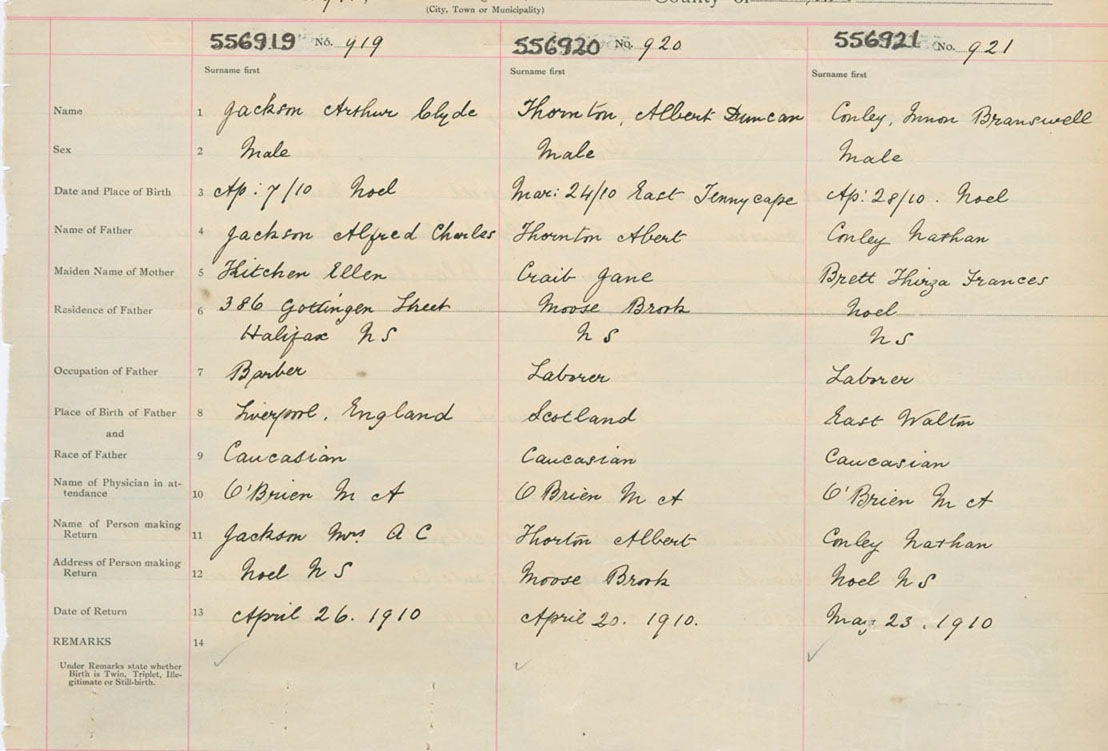 (City, Town or Municipality)
County of
556919 No. 919 556920 No. 920 556921 No. 921
Surname first Surname first Surname first
Name 1 Jackson Arthur Clyde Thornton, Albert Duncan Conley, Innon Branswell
Sex 2 Male Male Male
Date and Place of Birth 3 Ap: 7/10 Noel Mar: 24/10 East Tennycape Ap: 28/10. Noel
Name of Father 4 Jackson Alfred Charles Thornton Abert Conley Nathan
Maiden Name of Mother 5 Kitchen Ellen Craib Jane Brett Thirza Frances
Residence of Father 6 386 Gottingen Street Moose Brook Noel
Halifax N S N S N S
Occupation of Father 7 Barber Laborer Laborer
Place of Birth of Father 8 Liverpool, England Scotland East Walton
and
Race of Father 9 Caucasian Caucasian Caucasian
Name of Physician in at-
tendance 10 O'Brien M A O Brien M A O'Brien M A
Name of Person making
Return 11 Jackson Mrs A C Thorton Albert Conley Nathan
Address of Person making
Return 12 Noel N S Moose Brook Noel N S
Date of Return 13 April 26. 1910 April 20. 1910. May 23. 1910
REMARKS 14
Under Remarks state whether
Birth is Twin, Triplet, Ille-
gitimate or Still-birth.